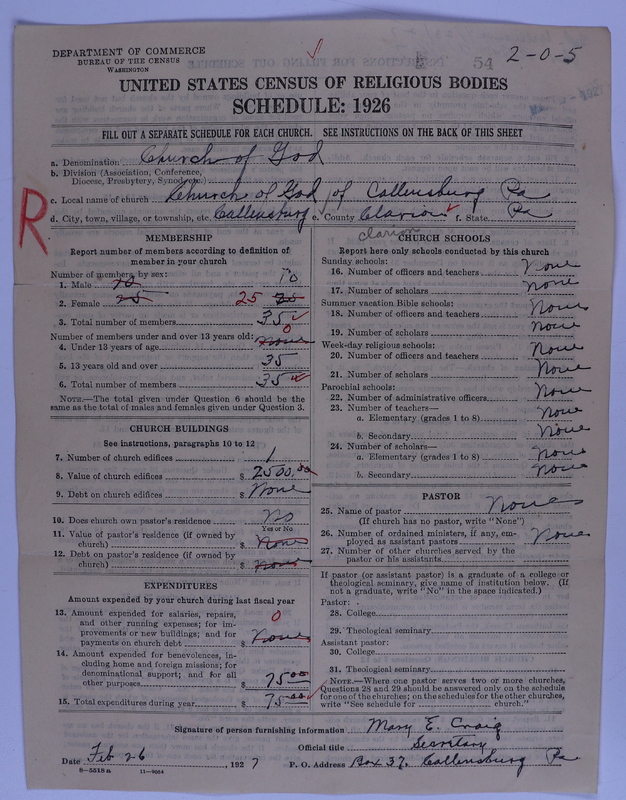 DEPARTMENT OF COMMERCE
BUREAU OF THE CENSUS
WASHINGTON
54
2-0-5
UNITED STATES CENSUS OF RELIGIOUS BODIES
SCHEDULE: 1926
FILL OUT A SEPARATE SCHEDULE FOR EACH CHURCH. SEE INSTRUCTIONS ON THE BACK OF THIS SHEET
a. Denomination Church of God
b. Division (Association, Conference,
Diocese, Presbytery, Synod, etc.)
c. Local name of church Church of God of Callensburg Pa
d. City, town, village, or township, etc. Callensburg e. County Clarion f. State Pa
R
clarion
MEMBERSHIP
Report number of members according to definition of
member in your church
Number of members by sex:
1. Male 10 10
2. Female 25 25 25
3. Total number of members 35
Number of members under and over 13 years old: 0
4. Under 13 years of age none
5. 13 years old and over 35
6. Total number of members 35
NOTE.—The total given under Question 6 should be
same as the total of males and females given under Question 3.
CHURCH BUILDINGS
See instructions, paragraphs 10 to 12
7. Number of church edifices 1
8. Value of church edifices $ 2500.00
9. Debt on church edifices $ None
10. Does church own pastor's residence No
Yes or No
11. Value of pastor's residence (if owned by
church) $ None
12. Debt on pastor's residence (if owned by
church) $ none
EXPENDITURES
Amount expended by your church during last fiscal year
13. Amount expended for salaries, repairs,
and other running expenses; for im-
provements or new buildings; and for
payments on church debt $ none
0
14. Amount expended for benevolences, in-
cluding home and foreign missions; for
denominational support; and for all
other purposes $ 75.00
15. Total expenditures during year $ 75.00
CHURCH SCHOOLS
Report here only schools conducted by this church
Sunday schools:
16. Number of officers and teachers none
17. Number of scholars none
Summer vacation Bible schools:
18. Number of officers and teachers None
19. Number of scholars none
Week-day religious schools:
20. Number of officers and teachers None
21. Number of scholars None
Parochial schools:
22. Number of administrative officers None
23. Number of teachers—
a. Elementary (grades 1 to 8) None
b. Secondary None
24. Number of scholars—
a. Elementary (grades 1 to 8) None
b. Secondary None
PASTOR
25. Name of pastor None
(If church has no pastor, write "None")
26. Number of ordained ministers, if any, em-
ployed as assistant pastors None
27. Number of other churches served by the
pastor or his assistants
If pastor (or assistant pastor) is a graduate of a college or
theological seminary, give name of institution below. (If
not a graduate, write "No" in the space indicated.)
Pastor:
28. College
29. Theological seminary
Assistant pastor:
30. College
31. Theological seminary
NOTE.—Where one pastor serves two or more churches,
Questions 28 and 29 should be answered only on the schedule
for one of the churches; on the schedules for the other churches,
write "See schedule for church."
Signature of person furnishing information Mary E. Craig
Official title Secretary
Date Feb 26, 1927 P. O. Address Box 37, Callensburg Pa
8-5518 a 11-9064